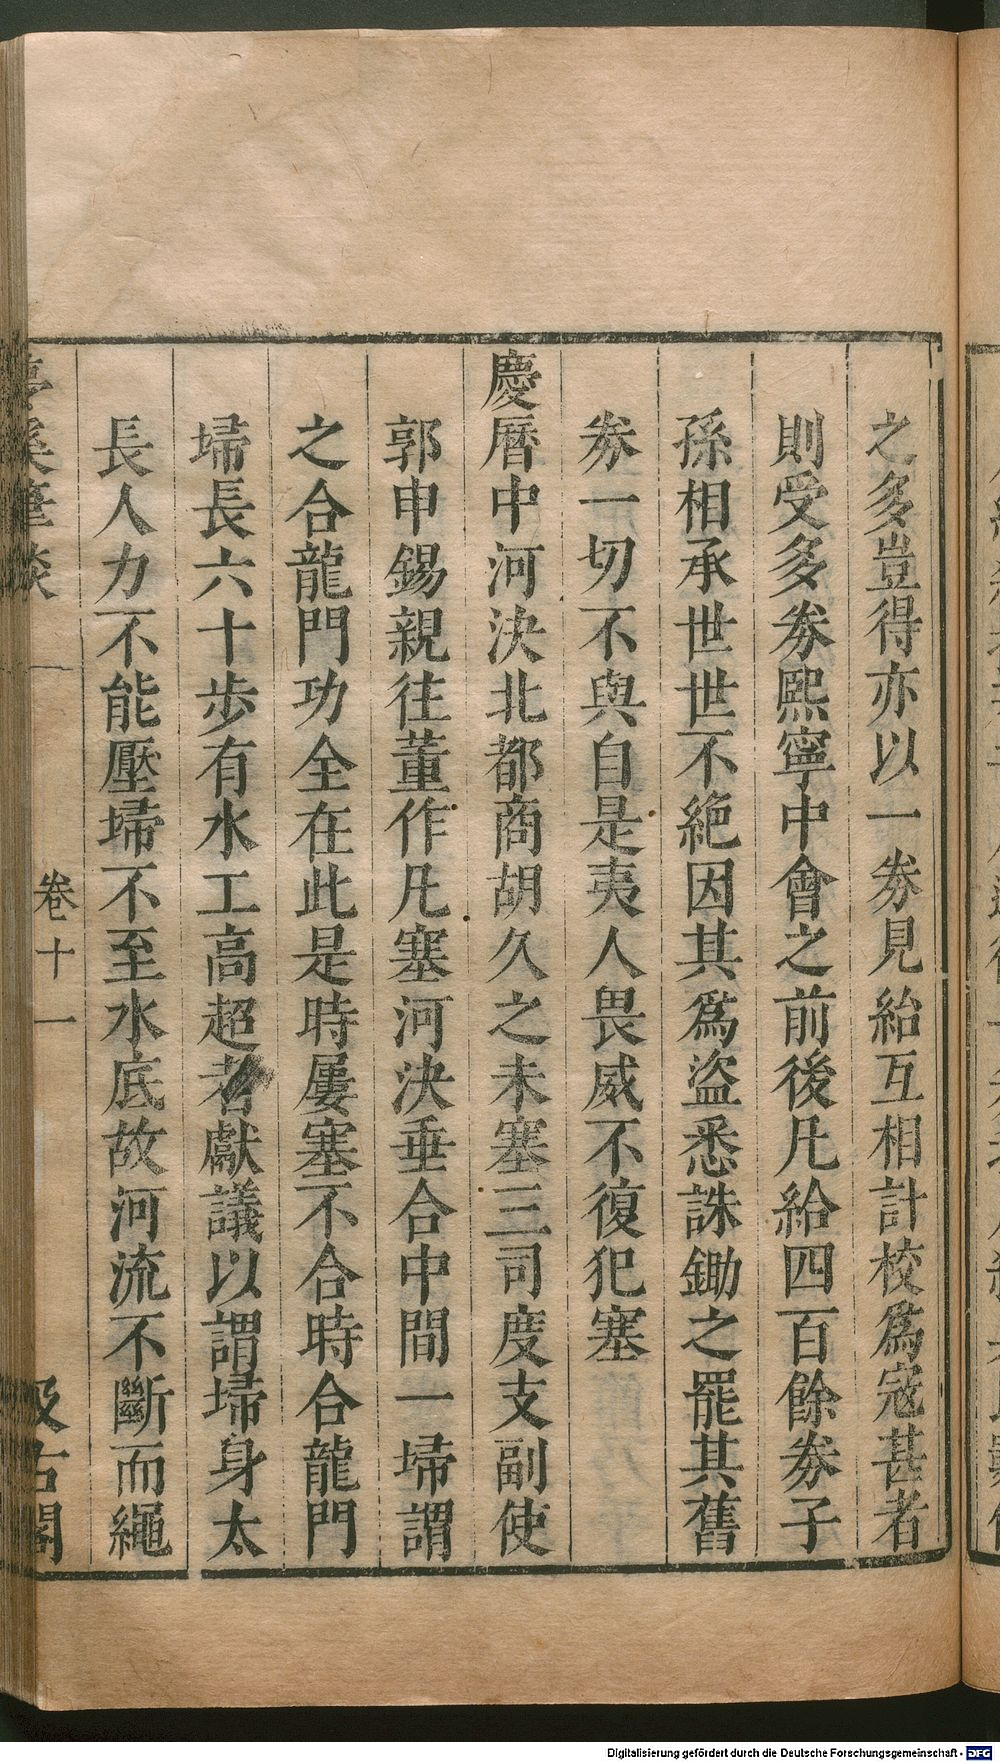 之多豈得亦以一劵見紿互相計校爲寇甚者
則受多劵熙寧中會之前後凡給四百餘劵子
孫相承世世不絶因其爲盜悉誅鋤之罷其舊
劵一切不與自是夷人畏威不復犯塞
慶曆中河決北都商胡久之未塞三司度支副使
郭申錫親往董作凡塞河決垂合中間一埽謂
之合龍門功全在此是時屢塞不合時合龍門
埽長六十步有水工高超者獻議以謂埽身太
長人力不能壓埽不至水底故河流不斷而繩
溪筆談
卷十一
汲古閣
Digitalisierung gefördert durch die Deutsche Forschungsgemeinschaft - DFG